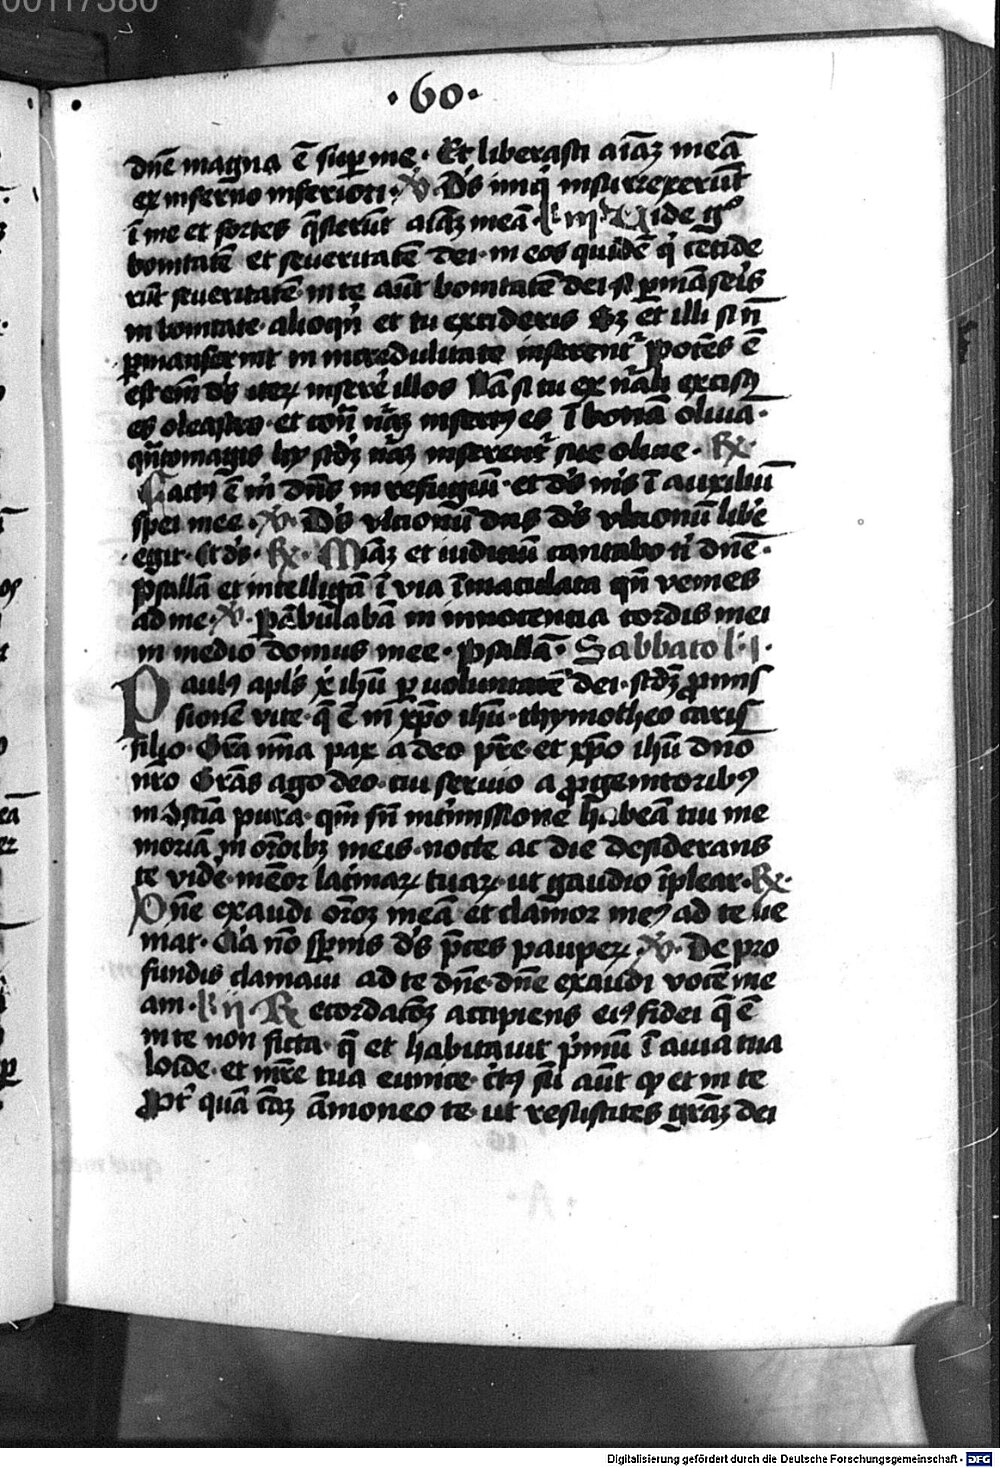 00117380
·60·
dn̄e magna ē sup me · Et liberasti aīaꝫ meā
ex inferno inferiori · ꝟ · Ds̄ iniqͥ insurrexerūt
ī me et fortes q̄sierūt aīaꝫ meā · l iij Vide gͦ
bonitatē et seueritatē dei · in eos quidē qͥ cecide
rūt seueritatē · in te aūt bonitatē dei si ꝑmāseris
in bonitate · alioqͥn et tu excideris Sꝫ et illi si nō
ꝑmanserint in incredulitate inserent᷑ Potēs ē
est em̄ ds̄ iteꝝ inserē illos Nā si tu ex nāli excisꝯ
es oleastro · et cont̄ nāꝫ insertꝯ es ī bonā oliuā ·
qn̄tomagis hy scd̄ꝫ nāꝫ inserent᷑ sue oliue · ℞
Factꝯ ē m̄ dn̄s in refugiū · et ds̄ ms̄ ī auxiliū
spei mee · ꝟ · Ds̄ vltionū dn̄s ds̄ vltionū libē
egit · Et ds̄ · ℞ · Miāꝫ et iudiciū cantabo tͥ dn̄e ·
psallā et intelligā ī via īmaculata qn̄ venies
ad me · ꝟ · ꝑābulabā in innocentia cordis mei
in medio domus mee · psallā · Sabbato l · j ·
Paulꝯ apl̄s xͥ ih̄u ꝑ voluntatē dei · scd̄ꝫ ꝓmis
sionē vite · q̄ ē in xp̄o ih̄u · thymotheo cariss
filio · Grā mīa pax a deo pr̄e · et xp̄o ih̄u dn̄o
nr̄o Grās ago deo · cui seruio a ꝓgenitoribꝯ
in ↄscīa pura · qm̄ sn̄ int̄missione habeā tui me
moriā in or̄oībꝫ meis · nocte ac die desiderans
te vidē · mēor lacͥmaꝝ tuaꝝ · ut gaudio īplear · ℞ ·
Dn̄e exaudi or̄oꝫ meā et clamor meꝯ ad te ue
niat · Qia nō sꝑnis ds̄ p̄ces pauꝑeꝝ · ꝟ · De pro
fundis clamaui ad te dn̄e · dn̄e exaudi vocē me
am · l ij · Recordacōꝫ accipiens eiꝯ fidei q̄ ē
in te non ficta · q̄ et habitauit pͥmū ī auia tua
loide · et mr̄e tua eunice · c̄tꝯ sū aūt ꝙ et in te
Ꝓpt᷑ quā cāꝫ āmoneo te · ut resuscites grāꝫ dei
Digitalisierung gefördert durch die Deutsche Forschungsgemeinschaft - DFG